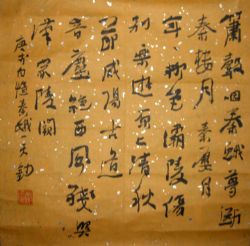 簫聲咽秦娥夢斷
秦樓月秦樓月
年年柳色灞陵傷
別樂遊原上清秋
節咸陽古道
音塵絕西風殘照
漢家陵闕
憶秦娥